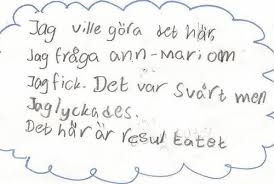 Jag ville göra det här,
Jag fråga ann-mari om
Jag fick. Det var svårt men
Jag lyckades.
Det här är resultatet